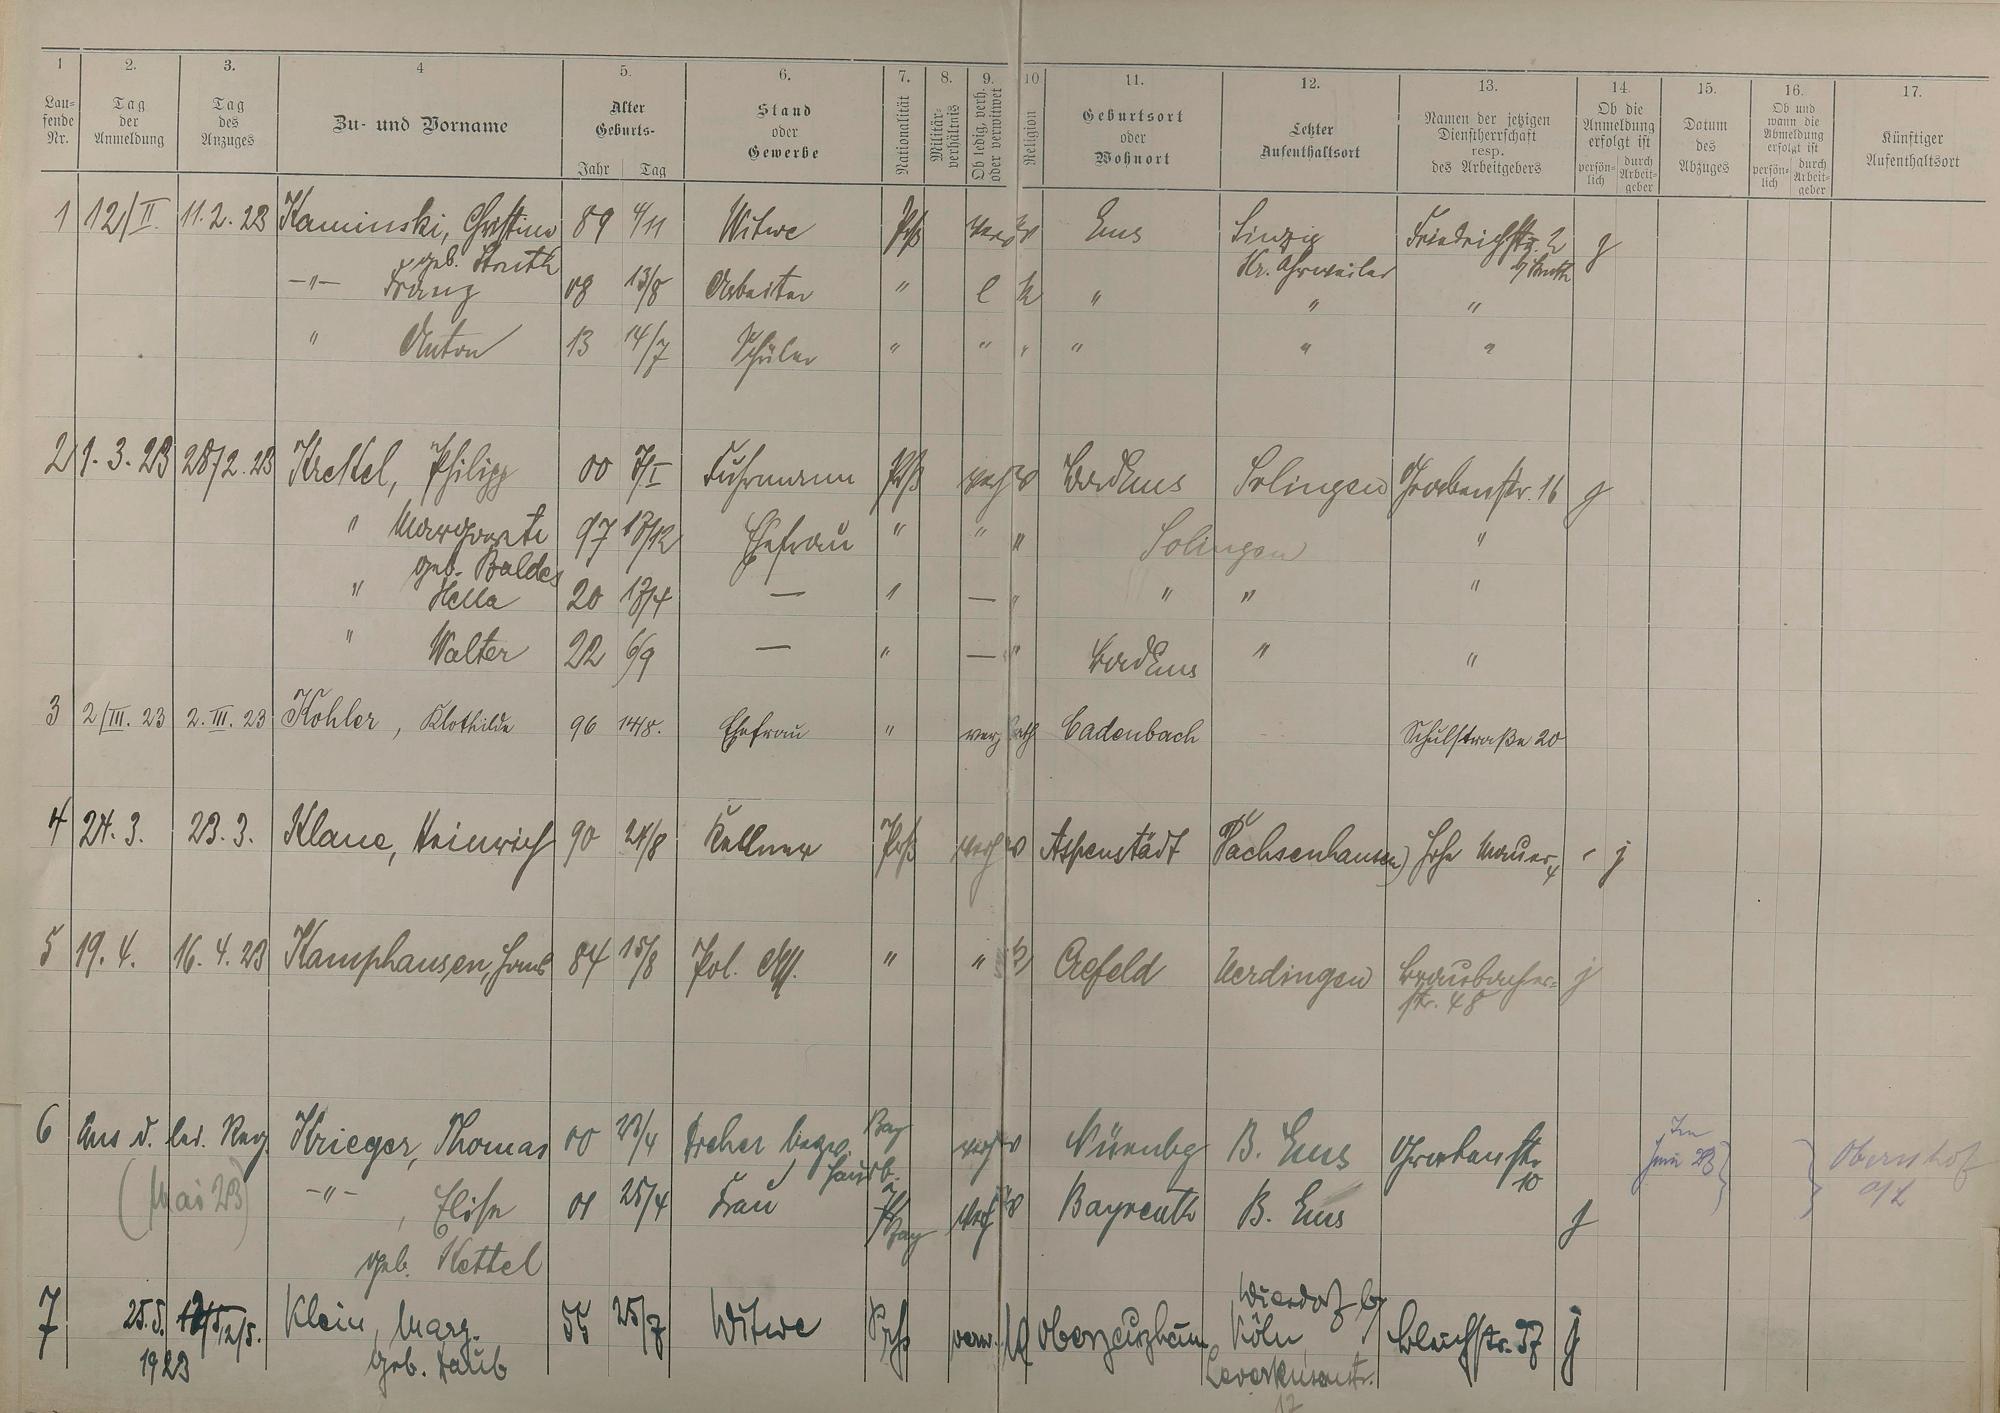 1 2. 3. 4 5. 6. 7. 8. 9. 10 11. 12. 13. 14. 15. 16. 17.
Laufende Nr.
Tag der Anmeldung
Tag des Anzuges
Zu- und Vorname
Alter Geburts-
Jahr Tag
Stand oder Gewerbe
Nationalität
Militärverhältnis
Ob ledig, verh. oder verwitwet
Religion
Geburtsort oder Wohnort
Letzter Aufenthaltsort
Namen der jetzigen Dienstherrschaft resp. des Arbeitgebers
Ob die Anmeldung erfolgt ist
persönlich durch Arbeitgeber
Datum des Abzuges
Ob und wann die Abmeldung erfolgt ist
persönlich durch Arbeitgeber
Künftiger Aufenthaltsort
1 12/II. 11.2.23 Kaminski, 89 4/11 Witwe Prß Ems Sinzig Friedrichstr. 2 j
geb. Struth Kr. Ahrweiler
-"- Franz 08 13/8 Arbeiter " l k " " "
" Anton 13 14/7 Schüler " " " " " "
2 1.3.23 28/2.23 Krekel, Philipp 00 Fuhrmann Prß verh Bad Ems Solingen Grabenstr. 16 j
" Margarete 97 13/12 Ehefrau " " " Solingen "
geb. Baldes
" Hella 20 13/4 — " — " " " "
" Walter 22 6/9 — " — " Bad Ems " "
3 2/III.23 2.III.23 Kohler, Klothilde 96 14/8. Ehefrau " verh kath Cadenbach Schulstraße 20
4 24.3. 23.3. Klaue, Heinrich 90 24/8 Kellner Prß verh Aspenstädt Sachsenhausen Hohe Mauer 4 " j
5 19.4. 16.4.23 Kamphausen, Hans 84 15/8 Pol. " " Crefeld Uerdingen Braubacher-
str. 48 j
6 Aus d. led. Reg. Krieger, Thomas 00 23/4 Dreher Bay verh Nürnbg B. Ems Grabenstr. 10 Im Juni 23 Obernhof a/L
(Mai 23) -"-, Elise 01 25/4 Frau Bay verh Bayreuth B. Ems j
geb. Kettel
7 25.5. 12/5. Klein, Marg. 55 25/7 Witwe Prß verw. Oberzeuzheim Wiesdorf b/ Köln Bleichstr. 37 j
1923 geb. Daub Leverkusenstr.
17